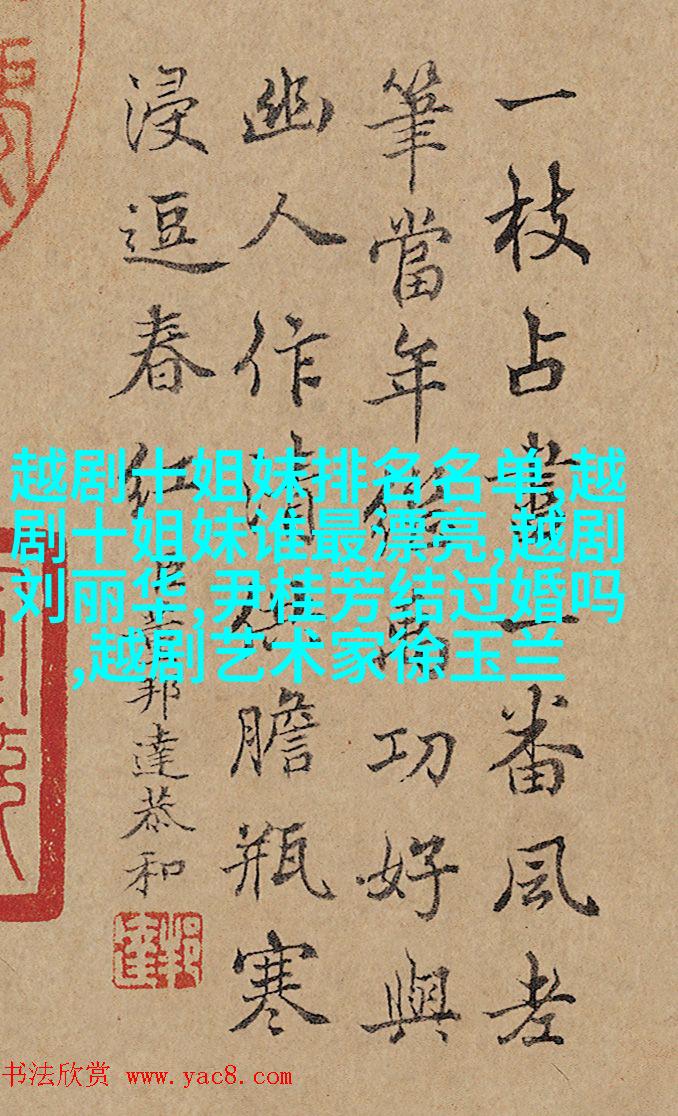 一枝占一番風老
筆當年功好與
幽人作清供膽瓶寒
浸逗春紅
臣董邦達恭和
越剧十姐妹排名名单,越
剧十姐妹谁最漂亮,越剧
刘丽华,尹桂芳结过婚吗
,越剧艺术家徐玉兰
书法欣赏 www.yac8.com